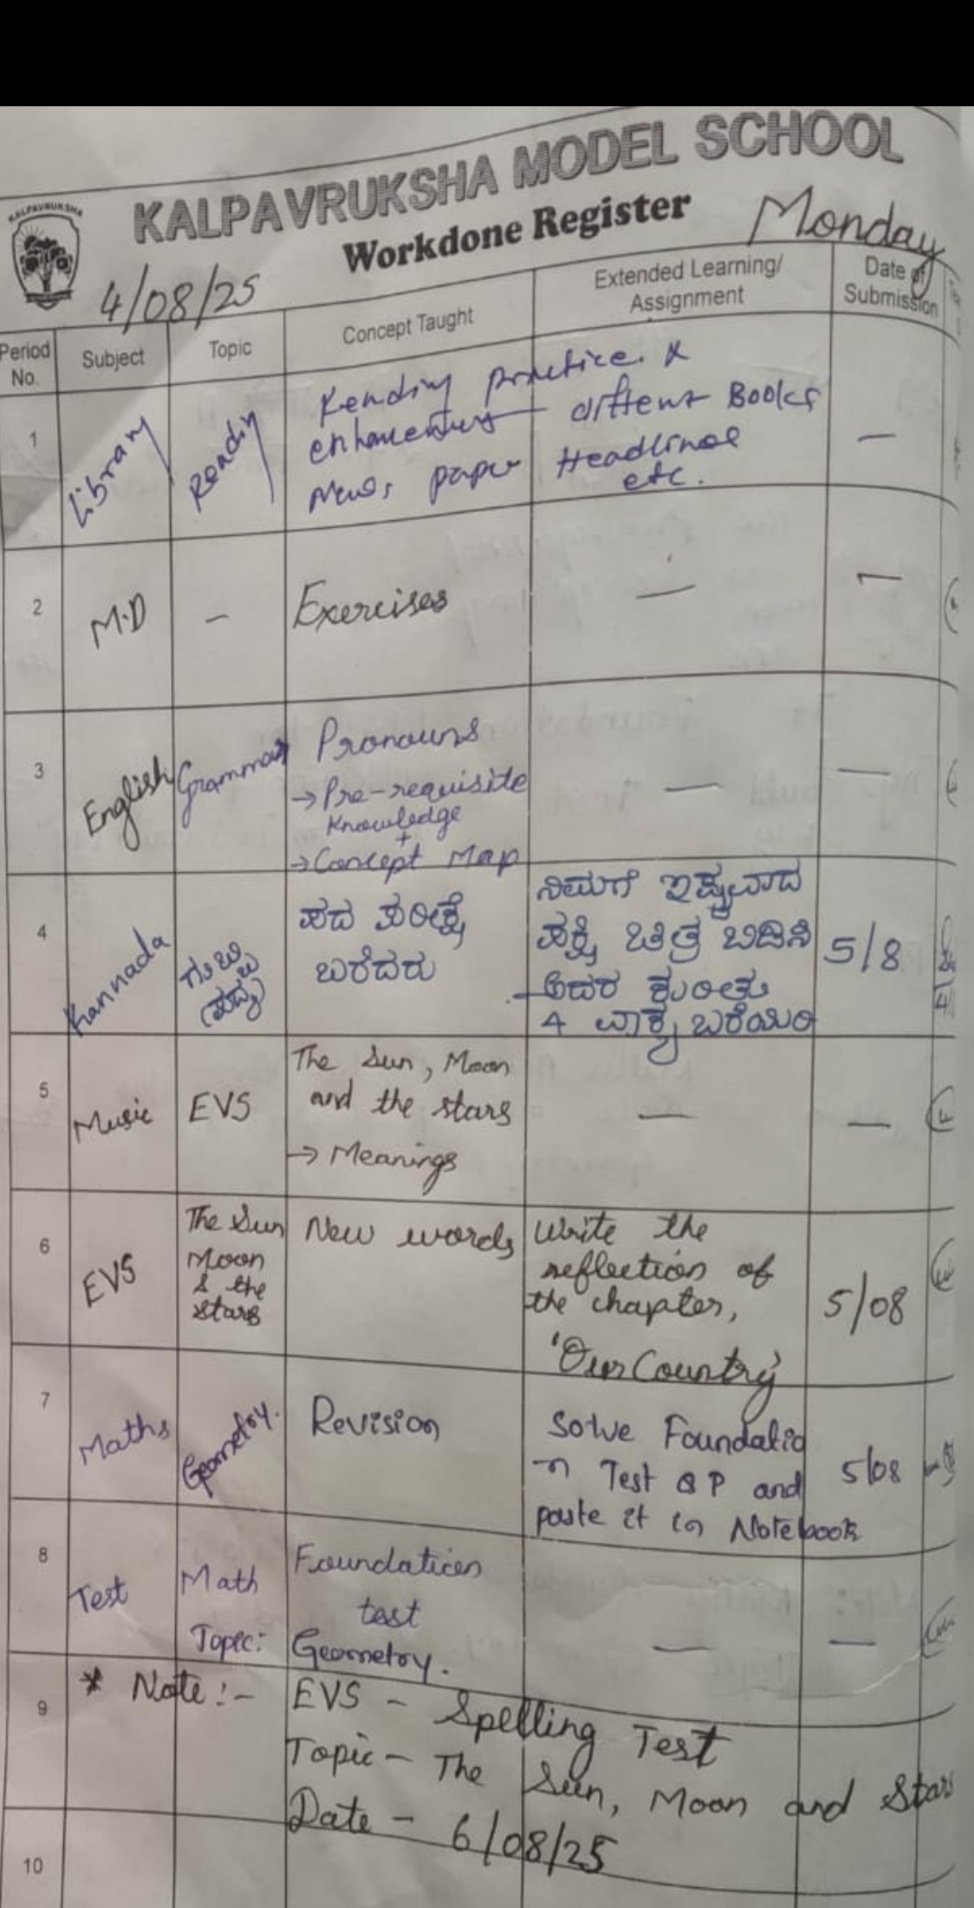 KALPAVRUKSHA
KALPAVRUKSHA MODEL SCHOOL
Workdone Register
Monday
4/08/25
Period No.
Subject
Topic
Concept Taught
Extended Learning/ Assignment
Date of Submission
1
Library
Reading
practice &
different Books
News paper Headlines
etc.
2
M.D
-
Exercises
—
—
3
English
Grammar
Pronouns
→ Pre-requisite
Knowledge
+
→ Concept Map
—
—
4
Kannada
ಗುಬ್ಬಿ
(ಪದ್ಯ)
ಪದ ಪರೀಕ್ಷೆ
ಬರೆದರು
ನಿಮಗೆ ಇಷ್ಟವಾದ
ಪಕ್ಷಿ ಚಿತ್ರ ಬಿಡಿಸಿ
ಅದರ ಕುರಿತು
4 ವಾಕ್ಯ ಬರೆಯಿರಿ
5/8
5
Music
EVS
The Sun, Moon
and the stars
→ Meanings
—
—
6
EVS
The Sun
Moon
& the
stars
New words
Write the
reflection of
the chapter,
'Our Country'
5/08
7
Maths
Geometry.
Revision
Solve Foundatio
n Test QP and
paste it in Notebook
5/08
8
Test
Math
Topic:
Foundation
test
Geometry.
—
—
9
* Note :-
EVS - Spelling Test
Topic - The Sun, Moon and Stars
Date - 6/08/25
10